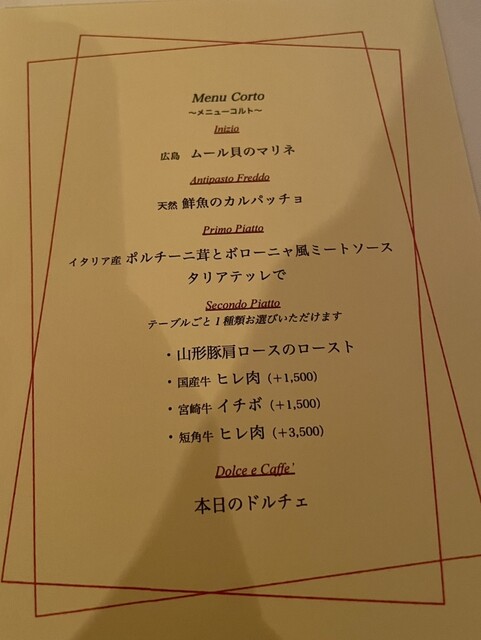 Menu Corto
～メニューコルト～
Inizio
広島 ムール貝のマリネ
Antipasto Freddo
天然 鮮魚のカルパッチョ
Primo Piatto
イタリア産 ポルチーニ茸とボローニャ風ミートソース
タリアテッレで
Secondo Piatto
テーブルごと1種類お選びいただけます
・山形豚肩ロースのロースト
・国産牛 ヒレ肉 (+1,500)
・宮崎牛 イチボ (+1,500)
・短角牛 ヒレ肉 (+3,500)
Dolce e Caffe'
本日のドルチェ